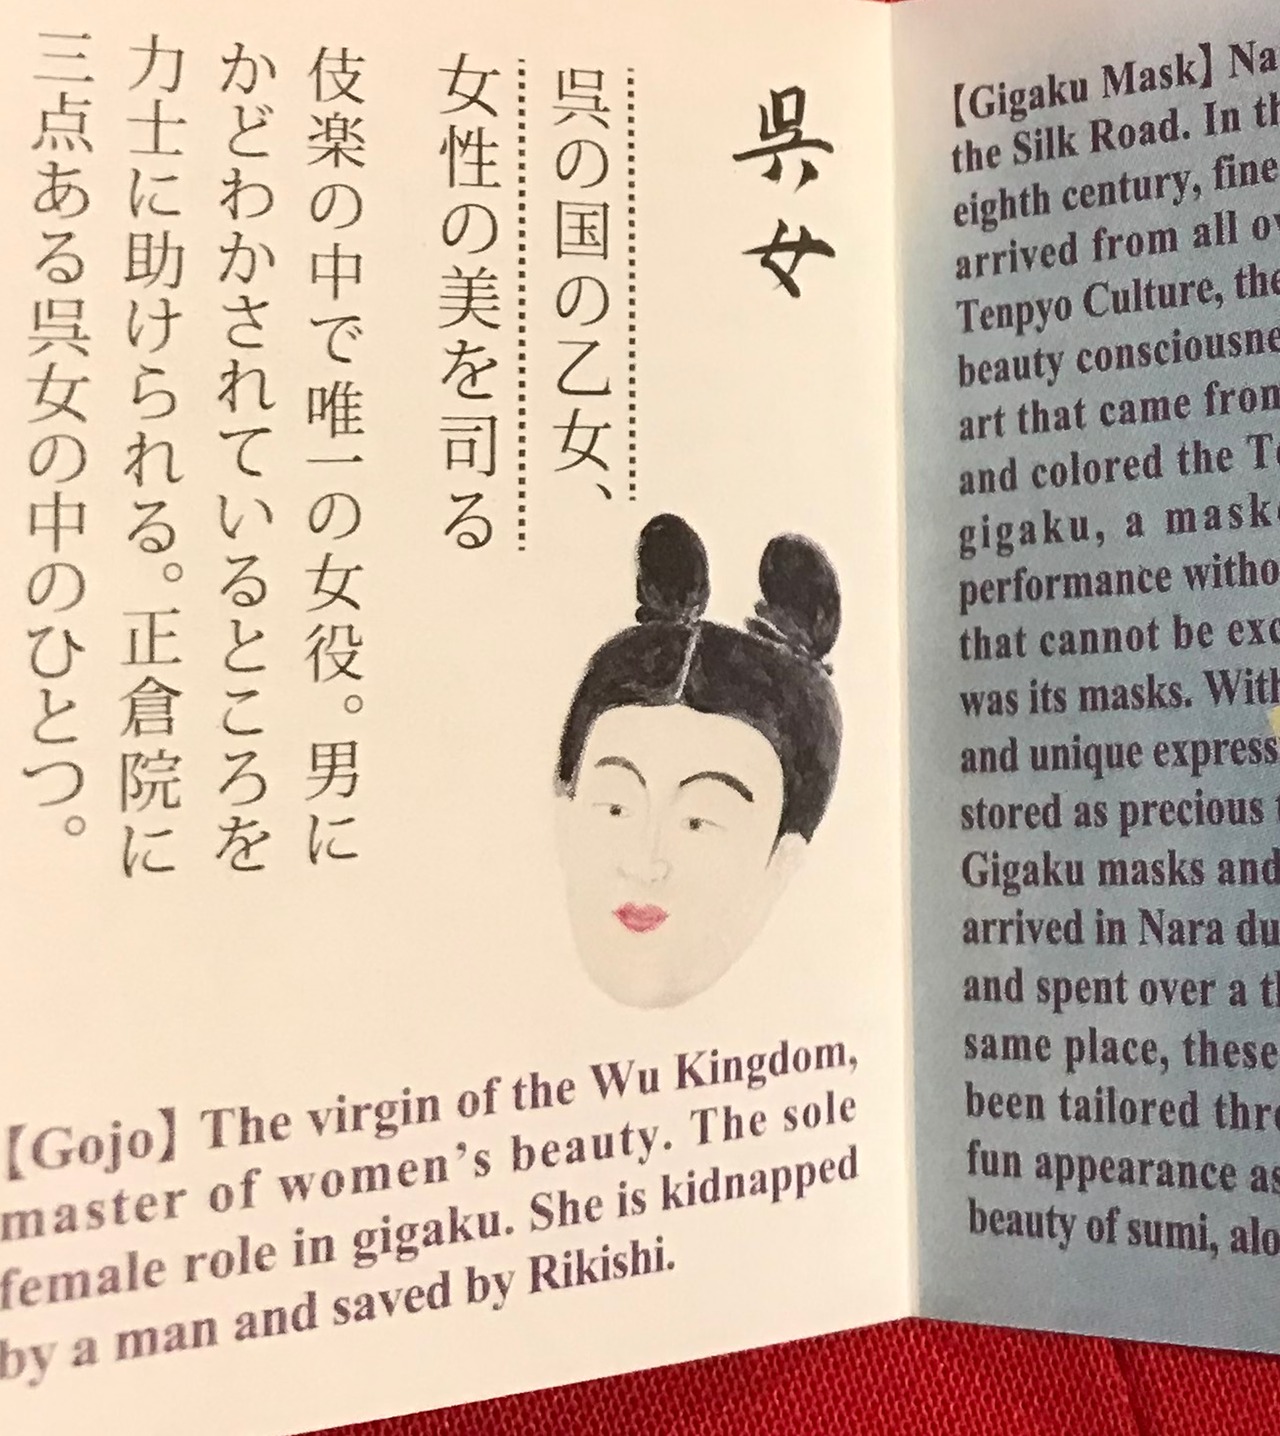 呉女
呉の国の乙女、
女性の美を司る
伎楽の中で唯一の女役。男に
かどわかされているところを
力士に助けられる。正倉院に
三点ある呉女の中のひとつ。
【Gojo】The virgin of the Wu Kingdom,
master of women’s beauty. The sole
female role in gigaku. She is kidnapped
by a man and saved by Rikishi.
【Gigaku Mask】
the Silk Road. In
eighth century,
arrived from all
Tenpyo Culture,
beauty
art that came
and colored the
gigaku, a
performance
that cannot be
was its masks.
and unique
stored as precious
Gigaku masks and
arrived in Nara
and spent over a
same place, these
been tailored
fun appearance
beauty of sumi,